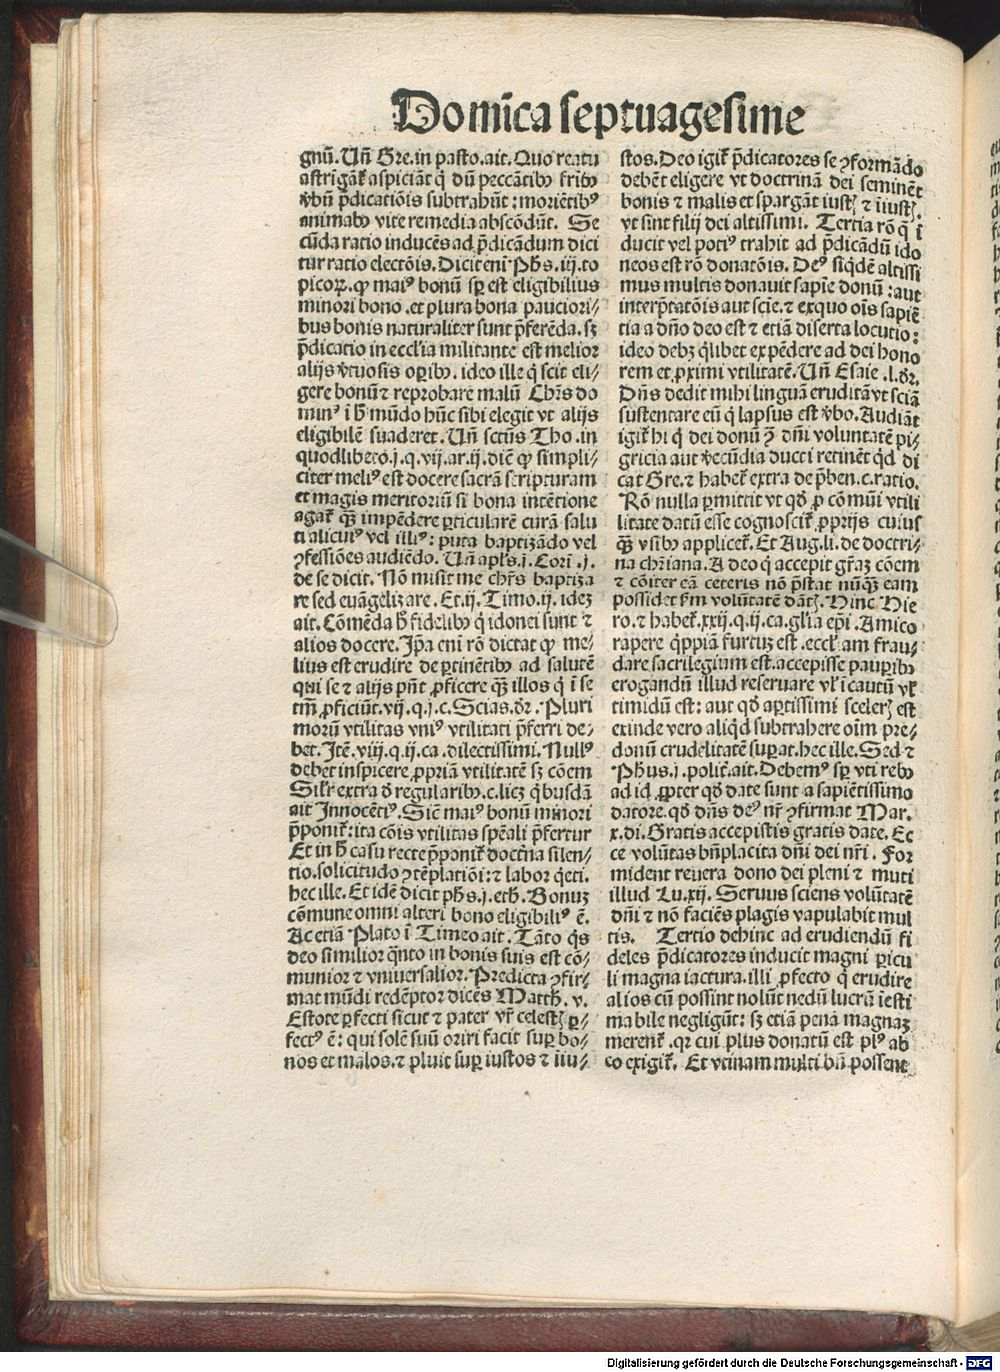 Domīca septuagesime
gnū. Uñ Gre. in pasto. ait. Quo reatu
astrigāt᷑ aspiciāt q̇ dū peccātibꝫ fr̄ibꝫ
v̄bū p̄dicatiōis subtrahūt: moriētibꝰ
animabꝫ vite remedia abscōdūt. Se
cūda ratio inducēs ad p̄dicādum dici
tur ratio electōis. Dicit eni᷑ Ph̄s. iij. to
picoꝝ. ꝙ maiꝰ bonū sꝑ est eligibilius
minori bono. et plura bona paucioriꝫ
bus bonis naturaliter sunt p̄ferēda. sꝫ
p̄dicatio in eccl̄ia militante est melior
alijs v̄tuosis oꝑibꝫ. ideo ille q̇ scit eli/
gere bonū ⁊ reprobare malū Chr̄s do
minꝰ ī h̄ mūdo hūc sibi elegit vt alijs
eligibilē suaderet. Uñ sctūs Tho. in
quodlibeto. j. q. vij. ar. ij. diē ꝙ simpli/
citer meliꝰ est docere sacrā scripturam
et magis meritoriū si bona intētione
agat᷑ qꝫ̄ impēdere ꝑticularē curā salu
ti alicuiꝰ vel illiꝰ: puta baptizādo vel
ꝯfessiōes audiēdo. Uñ apl̄s. j. Cori᷑. j.
de se dicit. Nō misit me chr̄s baptiza
re sed euāgelizare. Et. ij. Timo. ij. idez
ait. Cōmēda h̄ fidelibꝫ q̇ idonei sunt ⁊
alios docere. Ip̄a eni᷑ rō dictat ꝙ me/
lius est erudire de ꝑtinētibꝫ ad salutē
qui se ⁊ alijs pn̄t ꝓficere qꝫ̄ illos q̇ ī se
tm̄ ꝓficiūt. vij. q. j. c. Scias. d̄r. Pluri
morū vtilitas vniꝰ vtilitati p̄ferri de/
bet. Itē. viij. q. ij. ca. dilectissimi. Nullꝰ
debet inspicere ꝓpriā vtilitatē sꝫ cōem
Sil̄r extra d̄ regularibꝫ. c. licꝫ q̇busdā
ait Innocētiꝰ. Sic᷑ maiꝰ bonū minori
p̄ponit᷑: ita cōis vtilitas sp̄cali p̄fertur
Et in h̄ casu recte p̄ponit᷑ doctrīa silen/
tio. solicitudo ꝯtēplatiōi: ⁊ labor q̇eti.
hec ille. Et idē dicit ph̄s. j. eth. Bonuz
cōmune omni alteri bono eligibiliꝰ ē.
Ac etiā Plato ī Timeo ait. Tāto q̇s
deo similior q̇nto in bonis suis est cō/
munior ⁊ vniuersalior. Predicta ꝯfir/
mat mūdi redēptor dicēs Matth. v.
Estote ꝑfecti sicut ⁊ pater vr̄ celestꝭ ꝑ/
fectꝰ ē: qui solē suū oriri facit suꝑ bo/
nos et malos. ⁊ pluit suꝑ iustos ⁊ iiu/
stos. Deo igit᷑ p̄dicatores se ꝯformādo
debēt eligere vt doctrinā dei seminēt
bonis ⁊ malis et spargāt iustꝭ ⁊ īiustꝭ.
vt sint filij dei altissimi. Tertia rō q̄ ī
ducit vel potiꝰ trahit ad p̄dicādū ido
neos est rō donatōis. Deꝰ siq̇dē altissi
mus multis donauit sapīe donū: aut
interp̄tatōis aut sciē. ⁊ exquo oīs sapiē
tia a dn̄o deo est ⁊ etiā diserta locutio:
ideo debꝫ q̇libet expēdere ad dei hono
rem et ꝓximi vtilitatē. Uñ Esaie. l. d̄r.
Dn̄s dedit mihi linguā eruditā vt sciā
sustentare eū q̇ lapsus est v̄bo. Audiāt
igit᷑ hi q̇ dei donū ꝯ̄ dn̄i voluntatē pi/
gricia aut v̄ecūdia ducti retinēt q̇d di
cat Gre. ⁊ habet᷑ extra de p̄ben. c. ratio.
Rō nulla ꝑmittit vt qd̄ ꝓ cōmūi vtili
litate datū esse cognoscit᷑ ꝓprijs cuius
qꝫ̄ vsibꝫ applicet᷑. Et Aug. li. de doctri/
na chr̄iana. A deo q̇ accepit gr̄az cōem
⁊ cōiter eā ceteris nō p̄stat nūqꝫ̄ eam
possidet s̄m volūtatē dātꝭ. Hinc Hie
ro. ⁊ habet᷑. xxij. q. ij. ca. gl̄ia ep̄i. Amico
rapere q̇ppiā furtuꝫ est. eccl᷑ am frau/
dare sacrilegium est. accepisse pauꝑibꝫ
erogandū illud reseruare vl̄ ī cautū vl̄
timidū est: aut qd̄ aꝑtissimi scelerꝭ est
exinde vero aliq̇d subtrahere oīm pre/
donū crudelitatē suꝑat. hec ille. Sed ⁊
Ph̄us. j. polit᷑. ait. Debemꝰ sꝑ vti rebꝫ
ad id ꝓpter qd̄ date sunt a sapiētissimo
datore. qd̄ dn̄s deꝰ nr̄ ꝯfirmat Mar.
x. di. Gratis accepistis gratis date. Ec
ce volūtas bn̄placita dn̄i dei nr̄i. For
mident reuera dono dei pleni ⁊ muti
illud Lu. xij. Seruus sciens volūtatē
dn̄i ⁊ nō faciēs plagis vapulabit mul
tis. Tertio dehinc ad erudiendū fi
deles p̄dicatores inducit magni ꝑicu
li magna iactura. illi ꝓfecto q̇ erudire
alios cū possint nolūt nedū lucrū iesti
mabile negligūt: sꝫ etiā penā magnaꝫ
merent᷑. qꝛ cui plus donatū est plꝰ ab
eo exigit᷑. Et vtinam multi bn̄ possent
Digitalisierung gefördert durch die Deutsche Forschungsgemeinschaft - DFG